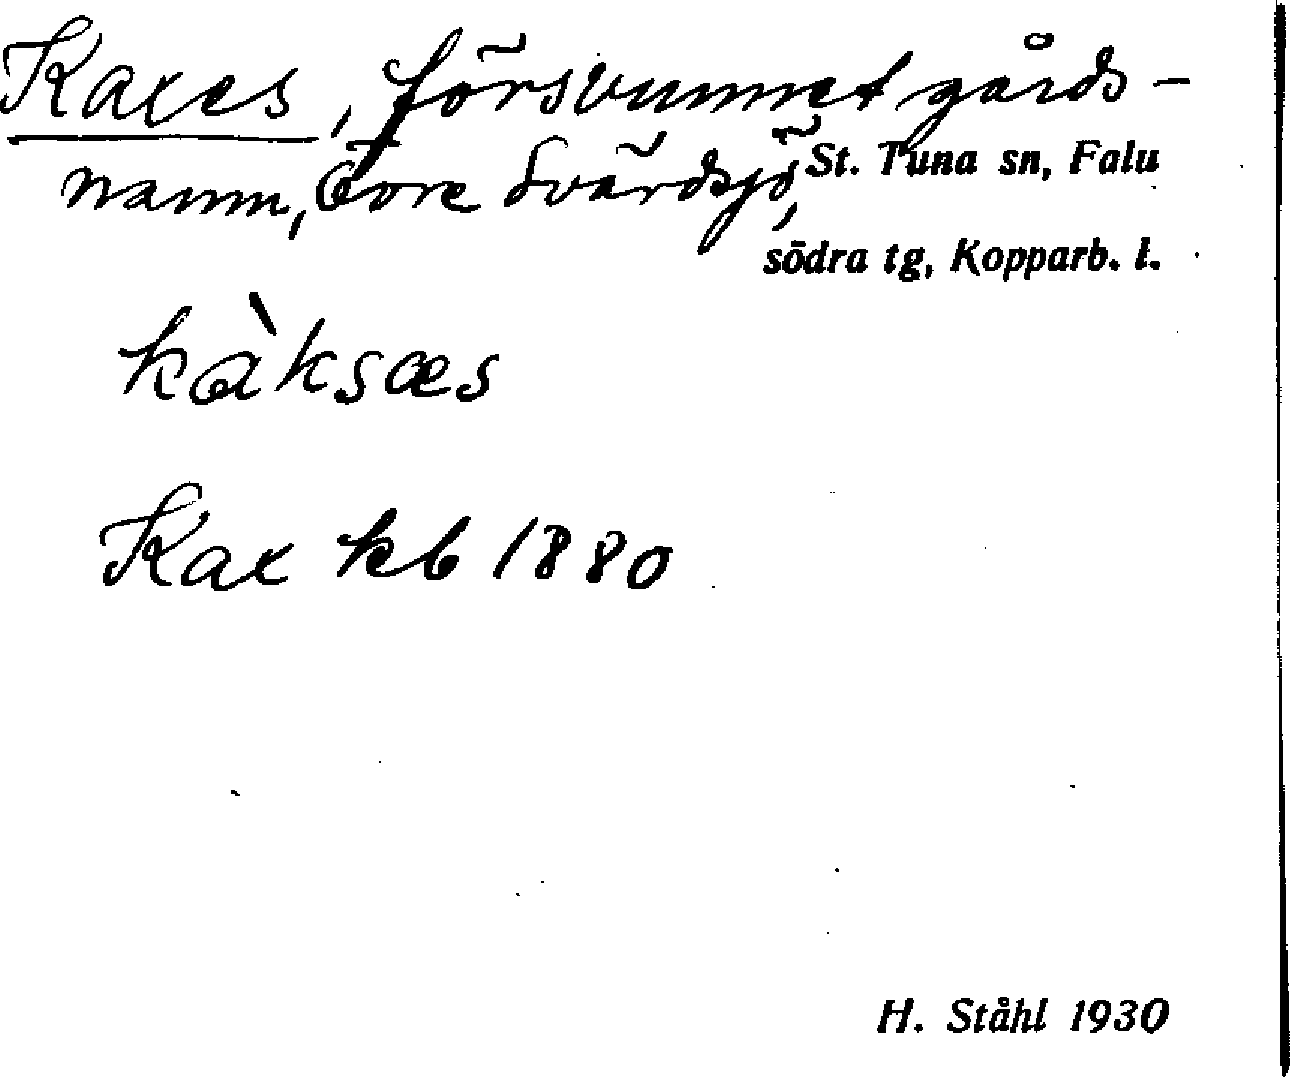 Kaxes, försvunnet gårds-
namn, Övre Svärdsjö,
St. Tuna sn, Falu
södra tg, Kopparb. l.
kàksæs
Kax kb 1880
H. Ståhl 1930